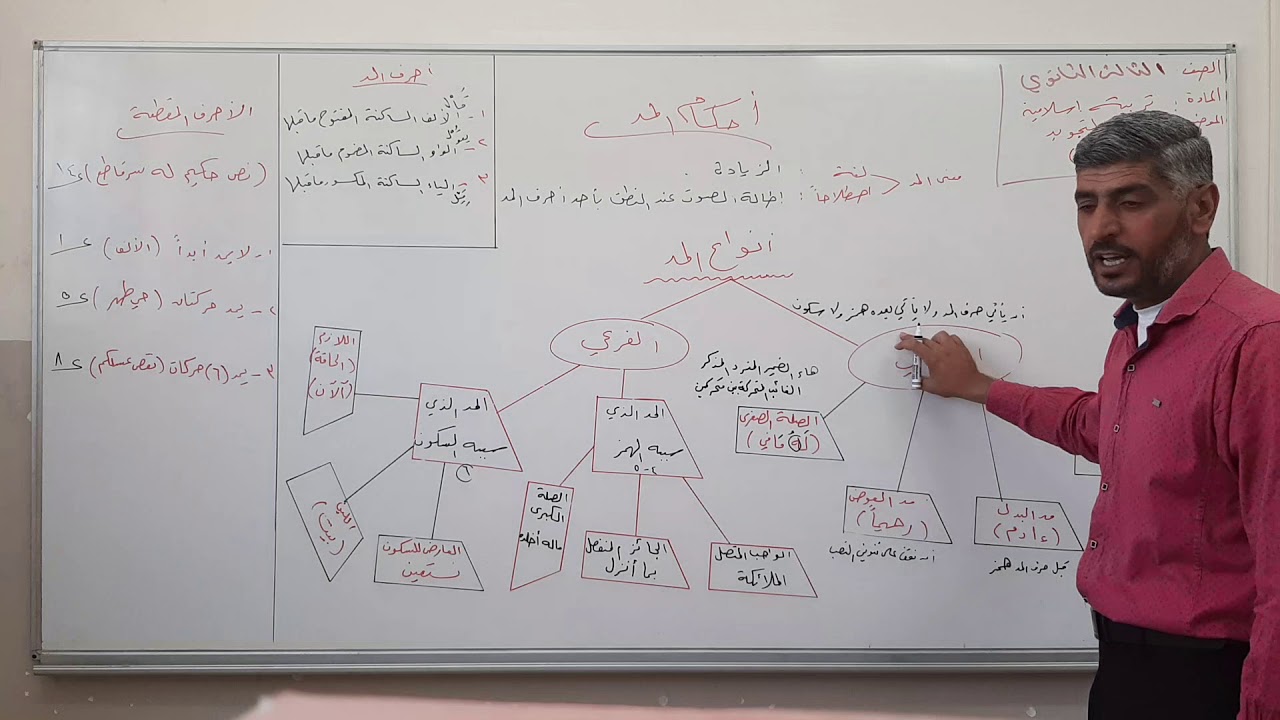 الصف الثالث الثانوي
المادة : تربية إسلامية
أحكام المد
معنى المد
لغة : الزيادة .
اصطلاحاً : إطالة الصوت عند النطق بأحد أحرف المد
أنواع المد
أن يأتي حرف المد ولا يأتي بعده همز ولا سكون
هاء الضمير المفرد المذكر
الغائب المتحركة بين متحركين
الصلة الصغرى
مد العوض
(رحيماً)
مد البدل
(ءادم)
قبل حرف المد همز
الفرعي
المد الذي
سببه الهمز
٢-٥
الواجب المتصل
الملائكة
الجائز المنفصل
بما أنزل
الصلة
الكبرى
ماله أخلده
المد الذي
سببه السكون
٦
العارض للسكون
نستعين
اللازم
(الحاقة)
(آلآن)
أحرف المد
قَال
١- الألف الساكنة المفتوح ماقبلها
٢- الواو الساكنة المضموم ماقبلها
٣- الياء الساكنة المكسور ماقبلها
الأحرف المقطعة
(نص حكيم له سر قاطع) ١٤
١- لايمد أبداً (الألف) ١
٢- يمد حركتان (حي طهر) ٥
٣- يمد (٦) حركات (نقص عسلكم) ٨